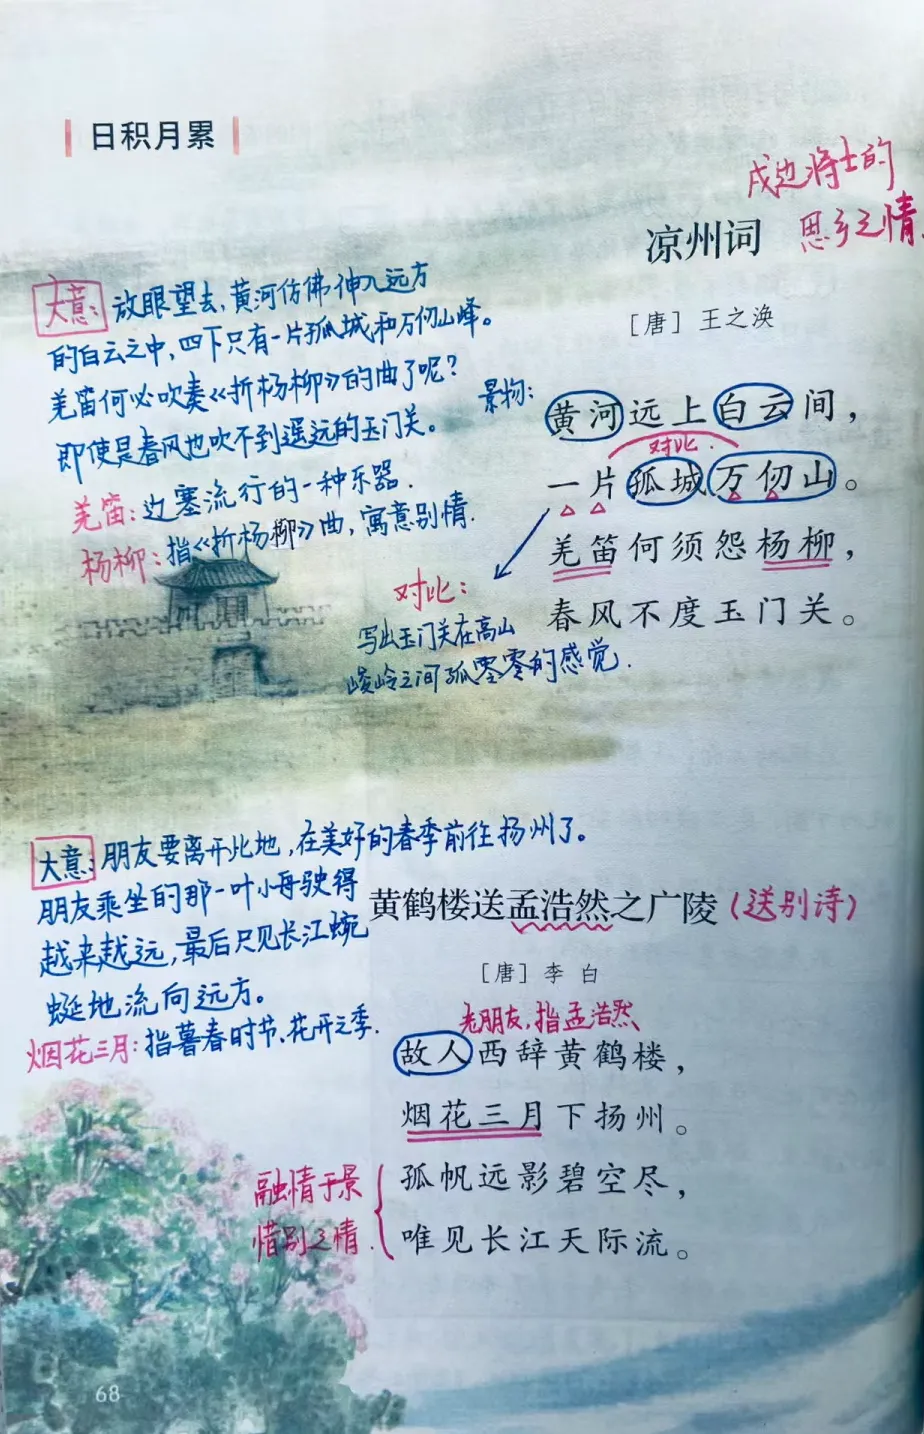 日积月累
戍边将士的
思乡之情.
凉州词
[唐] 王之涣
大意: 放眼望去,黄河仿佛伸入远方
的白云之中,四下只有一片孤城和万仞山峰。
羌笛何必吹奏《折杨柳》的曲子呢?
即使是春风也吹不到遥远的玉门关。
羌笛: 边塞流行的一种乐器.
杨柳: 指《折杨柳》曲,寓意别情.
景物:
黄河远上白云间,
对比.
一片孤城万仞山。
羌笛何须怨杨柳,
春风不度玉门关。
对比:
写出玉门关在高山
峻岭之间孤零零的感觉.
大意: 朋友要离开此地,在美好的春季前往扬州了。
朋友乘坐的那一叶小舟驶得
越来越远,最后只见长江蜿
蜒地流向远方。
烟花三月: 指暮春时节、花开之季.
黄鹤楼送孟浩然之广陵 (送别诗)
[唐] 李 白
老朋友,指孟浩然
故人西辞黄鹤楼,
烟花三月下扬州。
孤帆远影碧空尽,
唯见长江天际流。
融情于景
惜别之情.
68